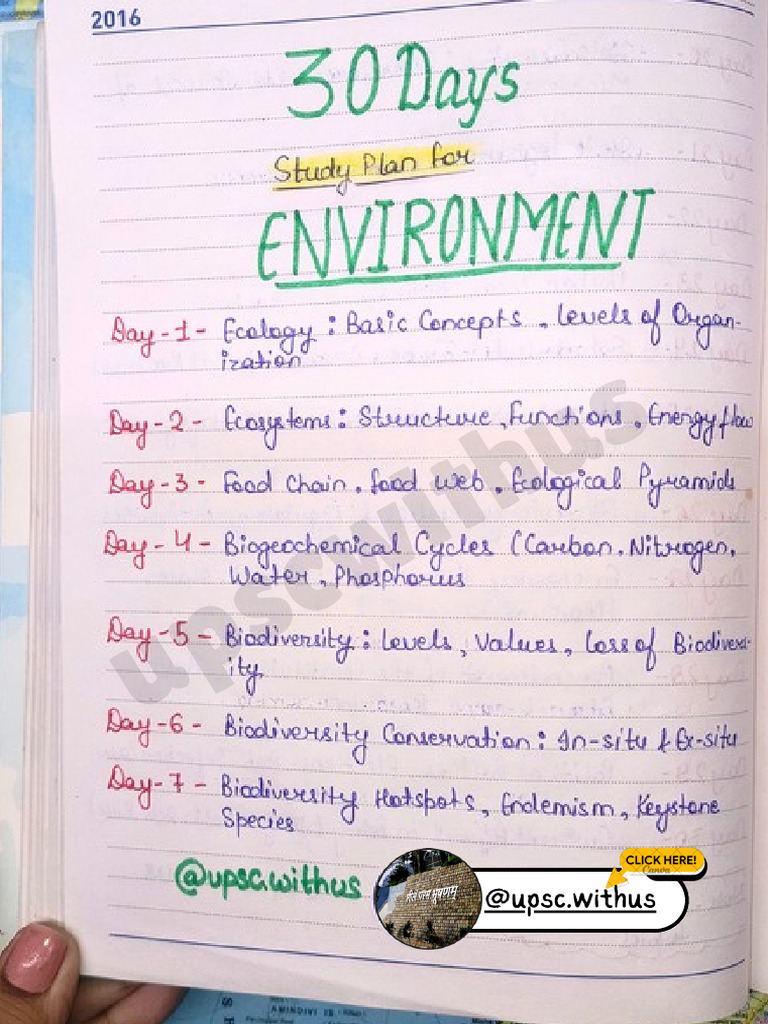 2016
30 Days
Study Plan for
ENVIRONMENT
Day-1- Ecology: Basic Concepts, Levels of Organ-
ization
Day-2- Ecosystems: Structure, Functions, Energy flow
Day-3- Food Chain, food web, Ecological Pyramids
Day-4- Biogeochemical Cycles (Carbon, Nitrogen,
Water, Phosphorus
Day-5- Biodiversity: Levels, Values, Loss of Biodivers-
ity,
Day-6- Biodiversity Conservation: In-situ & Ex-situ
Day-7- Biodiversity Hotspots, Endemism, Keystone
Species
upscwithus
@upsc.withus
CLICK HERE!
Canva
@upsc.withus
AMINDIVI IS.